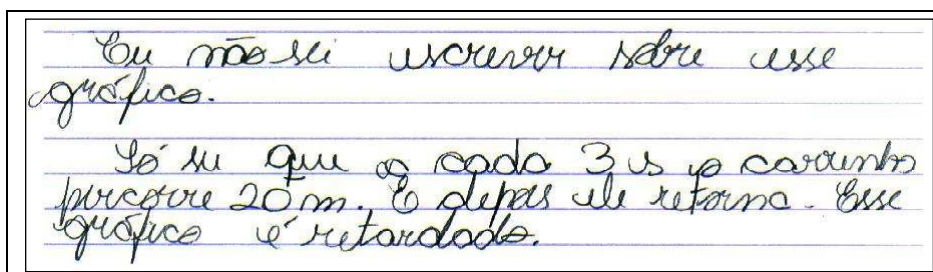 Eu não sei escrever sobre esse
gráfico.
Só sei que a cada 3 s o carrinho
percorre 20 m. E depois ele retorna. Esse
gráfico é retardado.